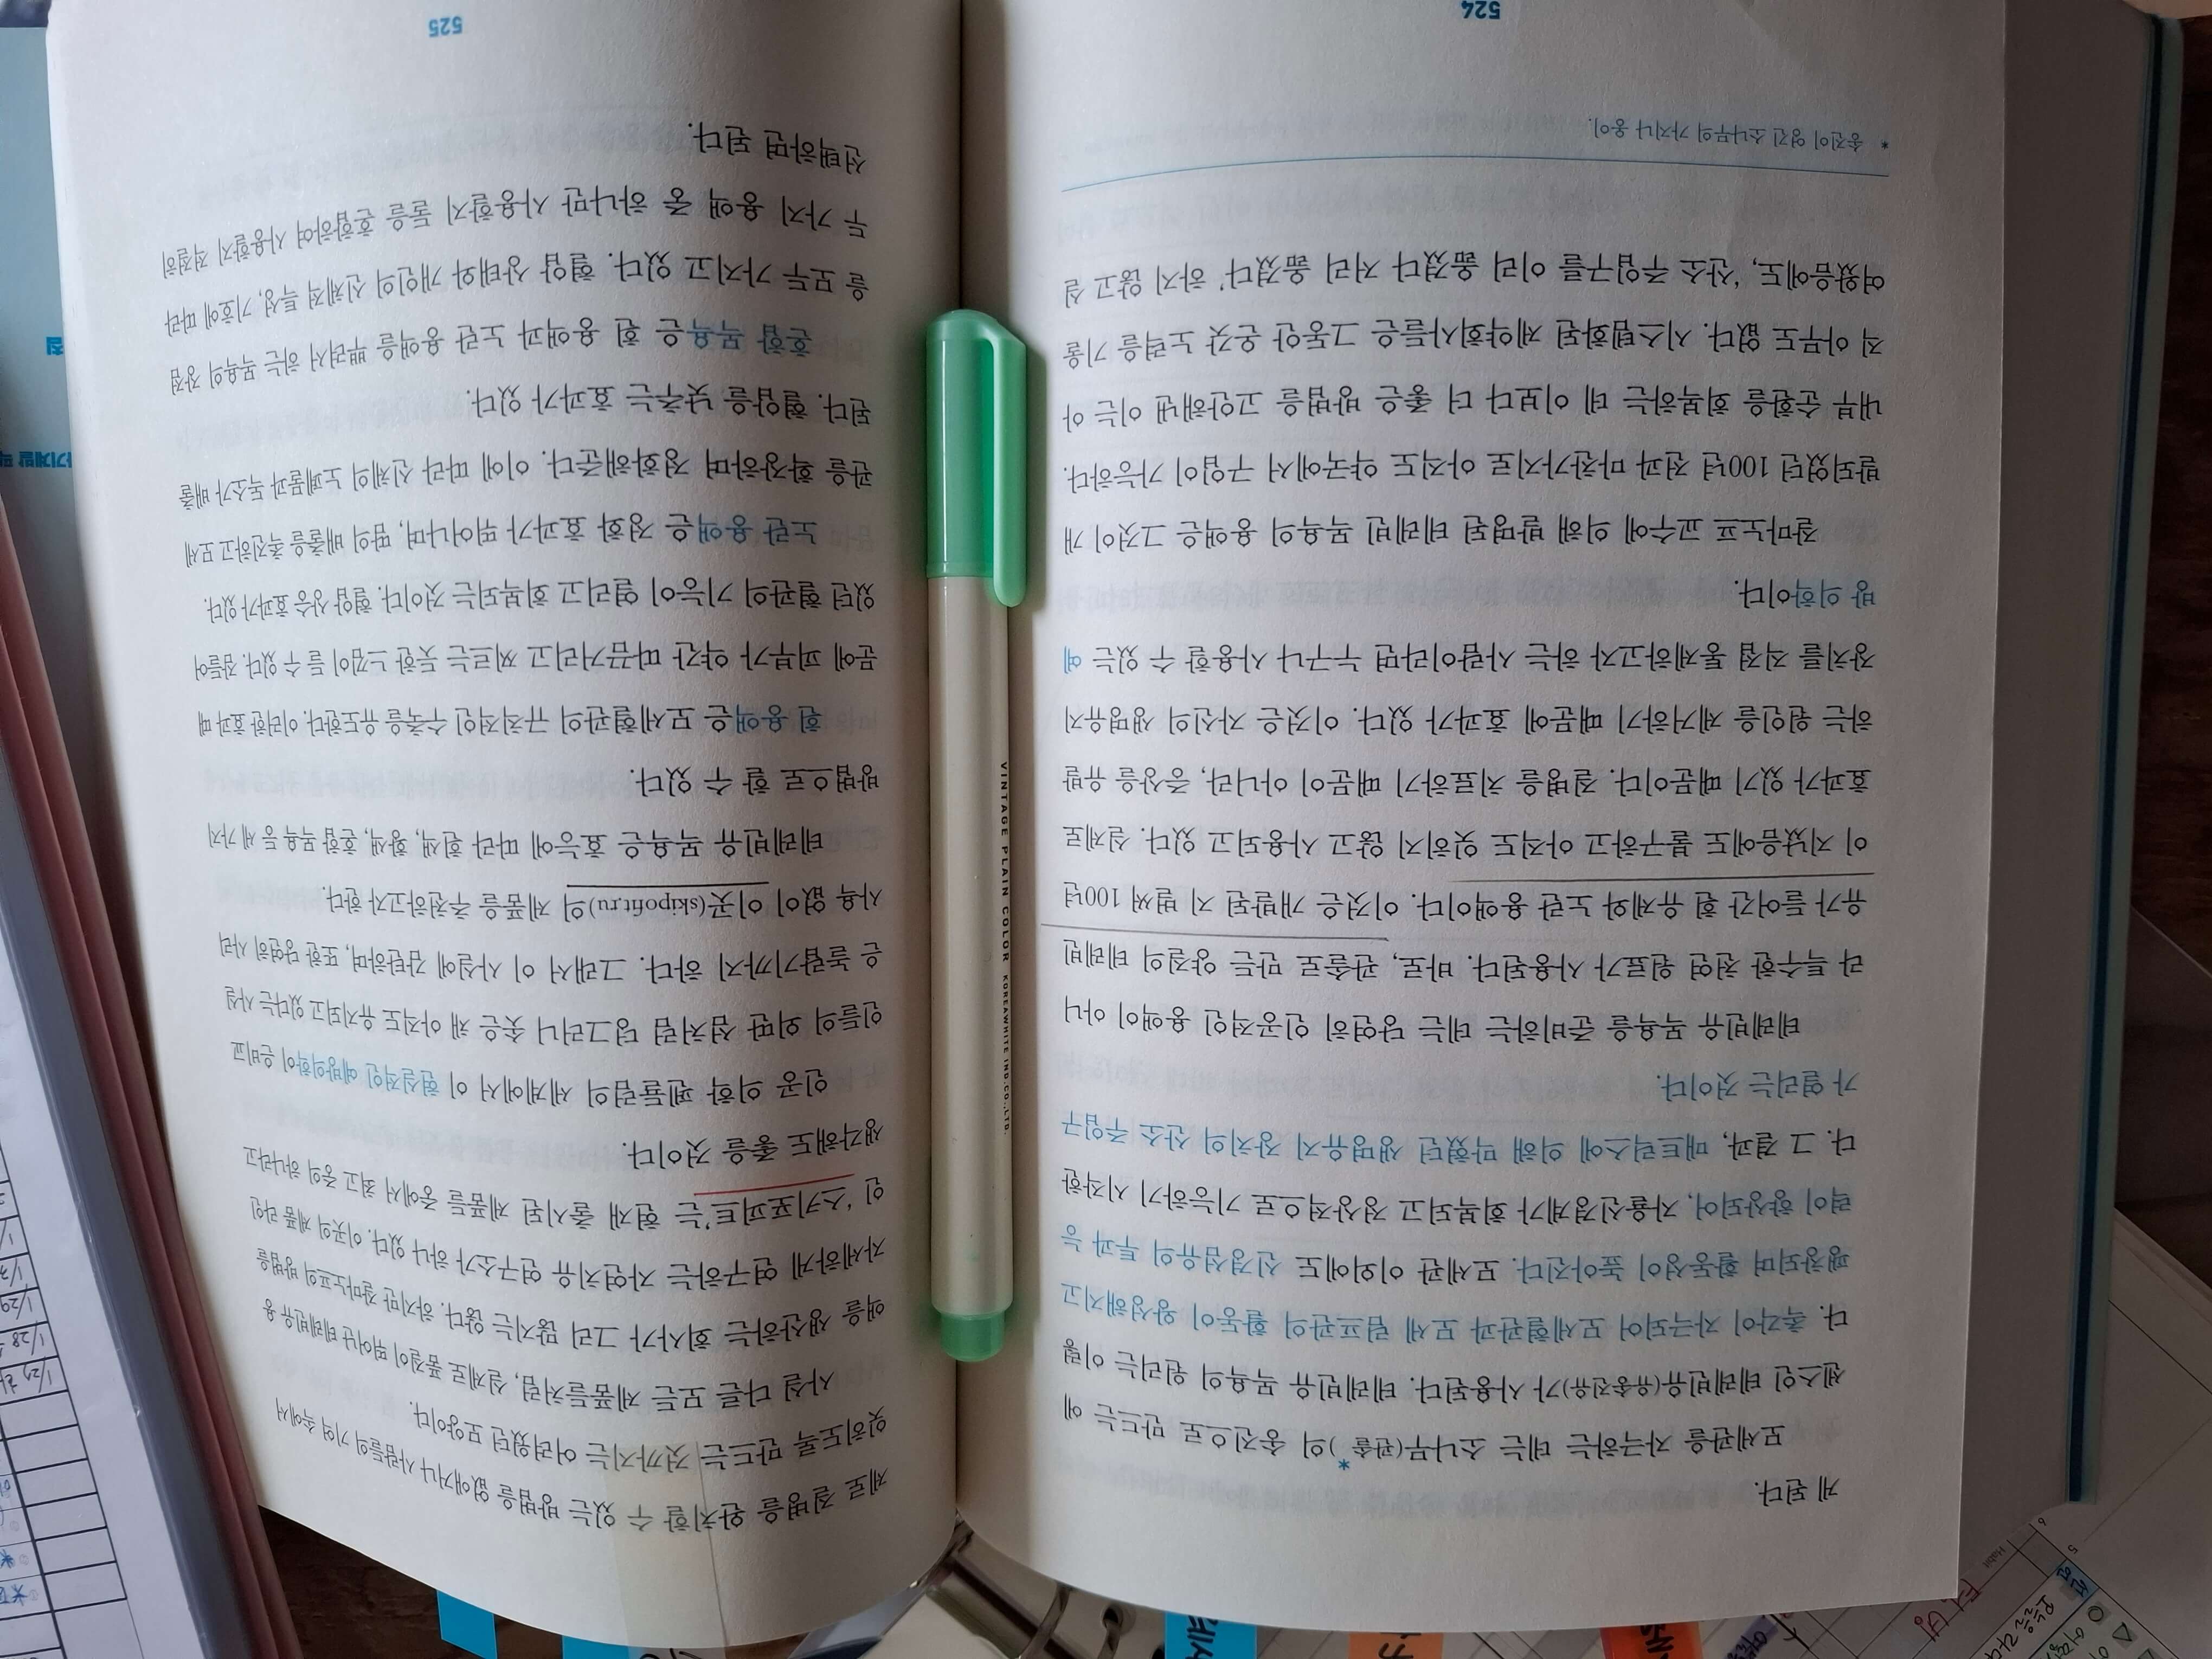 게 된다.
모세관을 자극하는 데는 소나무(관솔*)의 송진으로 만드는 에
센스인 테레빈유(유송진유)가 사용된다. 테레빈유 목욕의 원리는 이렇
다. 촉각이 자극되어 모세혈관과 모세 림프관의 활동이 왕성해지고
팽창되며 활동성이 높아진다. 모세관 이외에도 신경섬유의 투과 능
력이 향상되어, 자율신경계가 회복되고 정상적으로 기능하기 시작한
다. 그 결과, 매트릭스에 의해 막혔던 생명유지 장치의 산소 주입구
가 열리는 것이다.
테레빈유 목욕을 준비하는 데는 당연히 인공적인 용액이 아니
라 특수한 천연 원료가 사용된다. 바로, 관솔로 만든 양질의 테레빈
유가 들어간 흰 유제와 노란 용액이다. 이것은 개발된 지 벌써 100년
이 지났음에도 불구하고 아직도 잊히지 않고 사용되고 있다. 실제로
효과가 있기 때문이다. 질병을 치료하기 때문이 아니라, 증상을 유발
하는 원인을 제거하기 때문에 효과가 있다. 이것은 자신의 생명유지
장치를 직접 통제하고자 하는 사람이라면 누구나 사용할 수 있는 예
방 의학이다.
잘마노프 교수에 의해 발명된 테레빈 목욕의 용액은 그것이 개
발되었던 100년 전과 마찬가지로 아직도 약국에서 구입이 가능하다.
내부 순환을 회복하는 데 이보다 더 좋은 방법을 고안해낸 이는 아
직 아무도 없다. 시스템화된 제약회사들은 그동안 온갖 노력을 기울
여왔음에도, '산소 주입구를 이리 옮겼다 저리 옮겼다' 하지 않고 실
* 송진이 엉긴 소나무의 가지나 옹이.
524
제로 질병을 완치할 수 있는 방법을 없애거나 사람들의 기억 속에서
잊히도록 만드는 것까지는 어려웠던 모양이다.
사실 다른 모든 제품들처럼, 실제로 품질이 뛰어난 테레빈유 용
액을 생산하는 회사가 그리 많지는 않다. 하지만 잘마노프의 방법을
자세하게 연구하는 자연치유 연구소가 하나 있다. 이곳의 제품 라인
인 '스키포피트'는 현재 출시된 제품들 중에서 최고 중의 하나라고
생각해도 좋을 것이다.
인공 의학 펜듈럼의 세계에서 이 현실적인 예방의학이 은비교
인들의 외딴 섬처럼 덩그러니 솟은 채 아직도 유지되고 있다는 사실
은 놀랍기까지 하다. 그래서 이 사실에 감탄하며, 또한 당연히 사리
사욕 없이 이곳(skipofit.ru)의 제품을 추천하고자 한다.
테레빈유 목욕은 효능에 따라 흰색, 황색, 혼합 목욕 등 세 가지
방법으로 할 수 있다.
흰 용액은 모세혈관의 규칙적인 수축을 유도한다. 이러한 효과 때
문에 피부가 약간 따끔거리고 찌르는 듯한 느낌이 들 수 있다. 잠들어
있던 혈관의 기능이 열리고 회복되는 것이다. 혈압 상승 효과가 있다.
노란 용액은 정화 효과가 뛰어나며, 땀의 배출을 촉진하고 모세
관을 확장하며 정화해준다. 이에 따라 신체의 노폐물과 독소가 배출
된다. 혈압을 낮추는 효과가 있다.
혼합 목욕은 흰 용액과 노란 용액을 뿌려서 하는 목욕의 장점
을 모두 가지고 있다. 혈압 상태와 개인의 신체적 특성, 기호에 따라
두 가지 용액 중 하나만 사용할지 둘을 혼합하여 사용할지 적절히
선택하면 된다.
525
VINTAGE PLAIN COLOR KOREAWHITE IND.CO.,LTD.
1/28
1/29